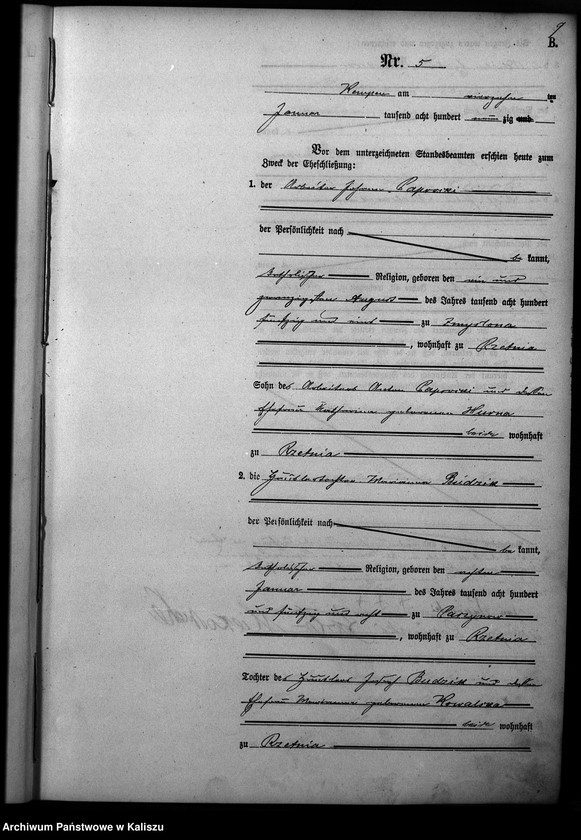 9
B.
Nr. 5
Kempen am vierzehn ten
Januar tausend acht hundert neun zig und
Vor dem unterzeichneten Standesbeamten erschien heute zum
Zweck der Eheschließung:
1. der Arbeiter Johann
der Persönlichkeit nach
be kannt,
katholischer Religion, geboren den ein und
zwanzigsten August des Jahres tausend acht hundert
fünfzig und eins zu Zmyslona
, wohnhaft zu Rzetnia
Sohn des Arbeiters Anton und dessen
Ehefrau Katharina geborenen Hurna
beide wohnhaft
zu Rzetnia
2. die Häuslertochter Marianna Budzik
der Persönlichkeit nach
be kannt,
katholischer Religion, geboren den achten
Januar des Jahres tausend acht hundert
und fünfzig und acht zu Parzynow
, wohnhaft zu Rzetnia
Tochter des Häuslers Josef Budzik und dessen
Ehefrau Marianna geborenen Kowalska
beide wohnhaft
zu Rzetnia
Archiwum Państwowe w Kaliszu